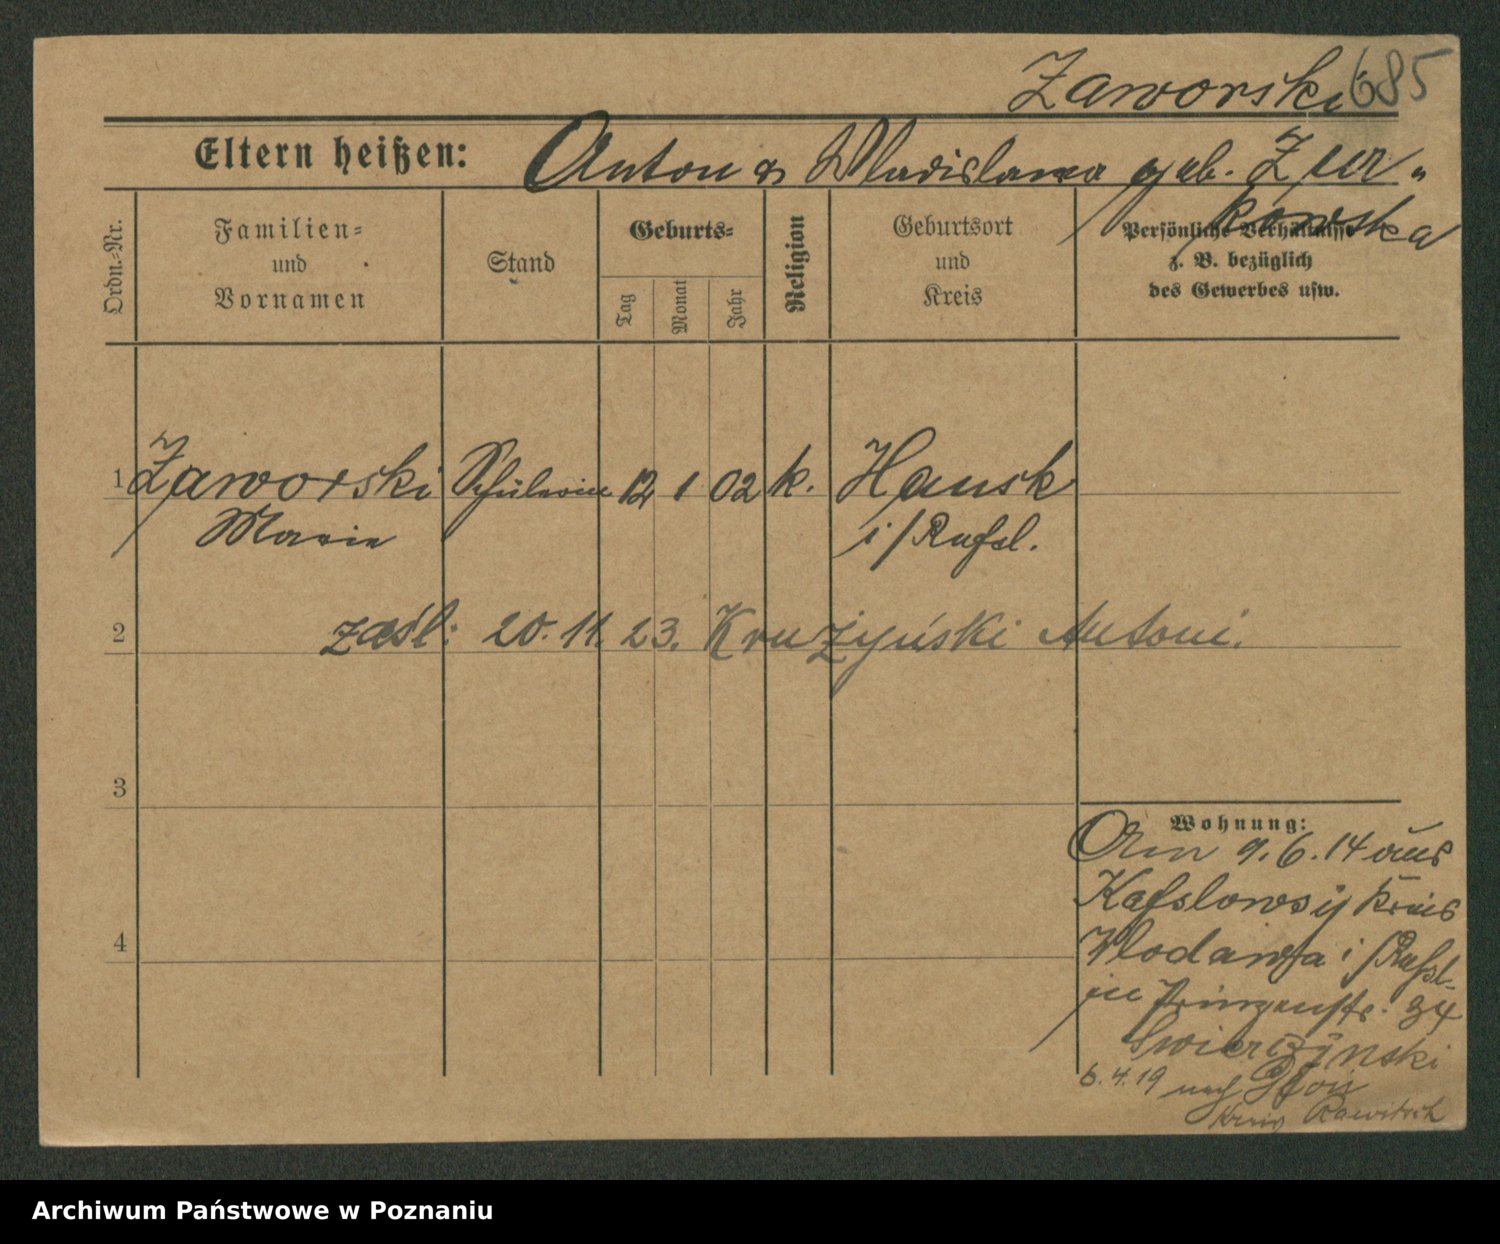 Zaworski 685
Eltern heißen: Anton & Wladislawa geb. Zur„
kowska
Ordn.-Nr.
Familien-
und
Vornamen
Stand
Geburts-
Tag
Monat
Jahr
Religion
Geburtsort
und
Kreis
Persönliche Verhältnisse
z. B. bezüglich
des Gewerbes usw.
1 Zaworski Schülerin 12 1 02 k. Hansk
Marie i/Russl.
2 zaśl: 20. 11. 23. Krużyński Antoni.
3
Wohnung:
Am 9. 6. 14 aus
Kreis
4
Wlodawa i/Russl.
in Prinzenstr. 34
Swierczynski
6. 4. 19 nach
Kreis Rawitsch
Archiwum Państwowe w Poznaniu